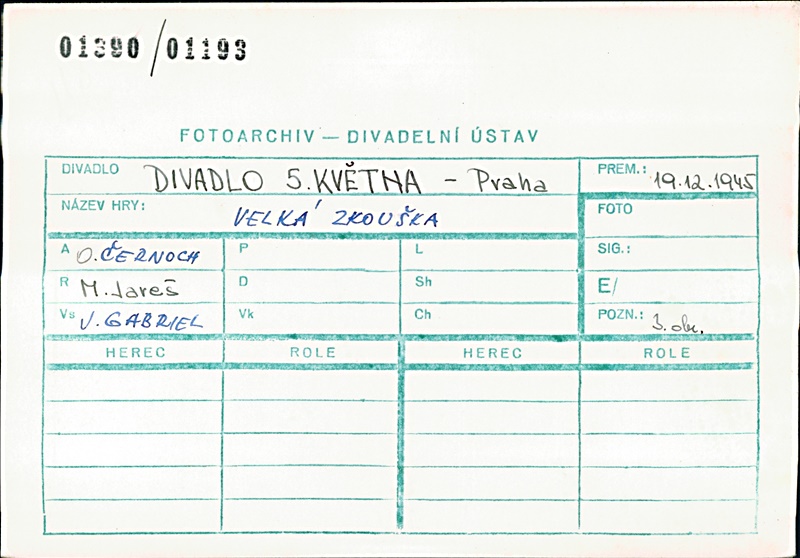 01390/01193
FOTOARCHIV — DIVADELNÍ ÚSTAV
DIVADLO DIVADLO 5. KVĚTNA - Praha PREM.: 19.12.1945
NÁZEV HRY: VELKÁ ZKOUŠKA FOTO
A O. ČERNOCH P L SIG.:
R M. Jareš D Sh E/
Vs J. GABRIEL Vk Ch POZN.: 3. obr.
HEREC ROLE HEREC ROLE